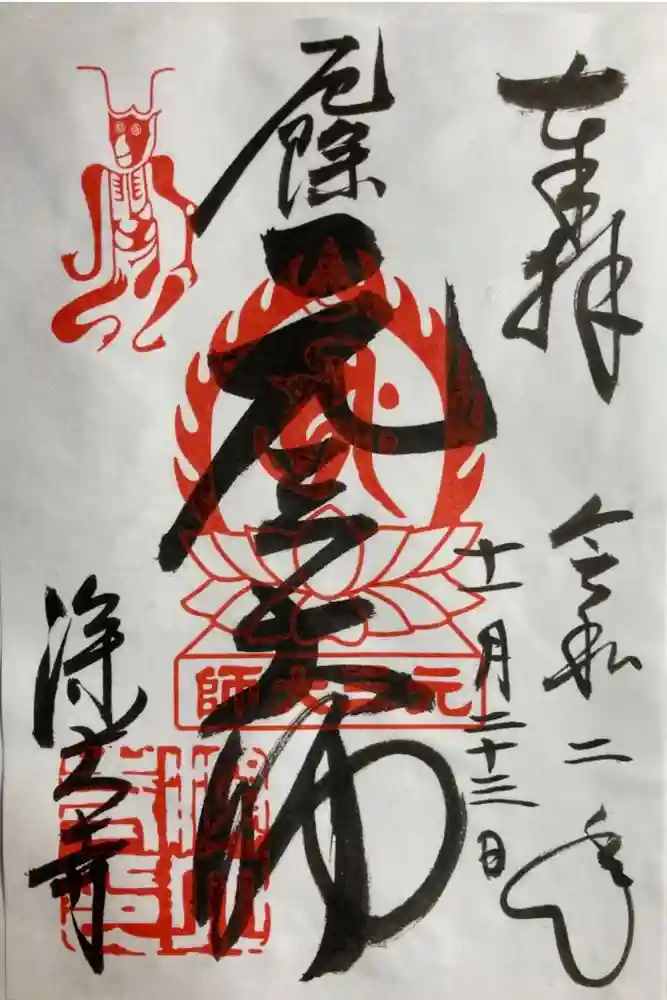 奉拝
令和二年
十一月二十三日
厄除
元三大師
元三大師